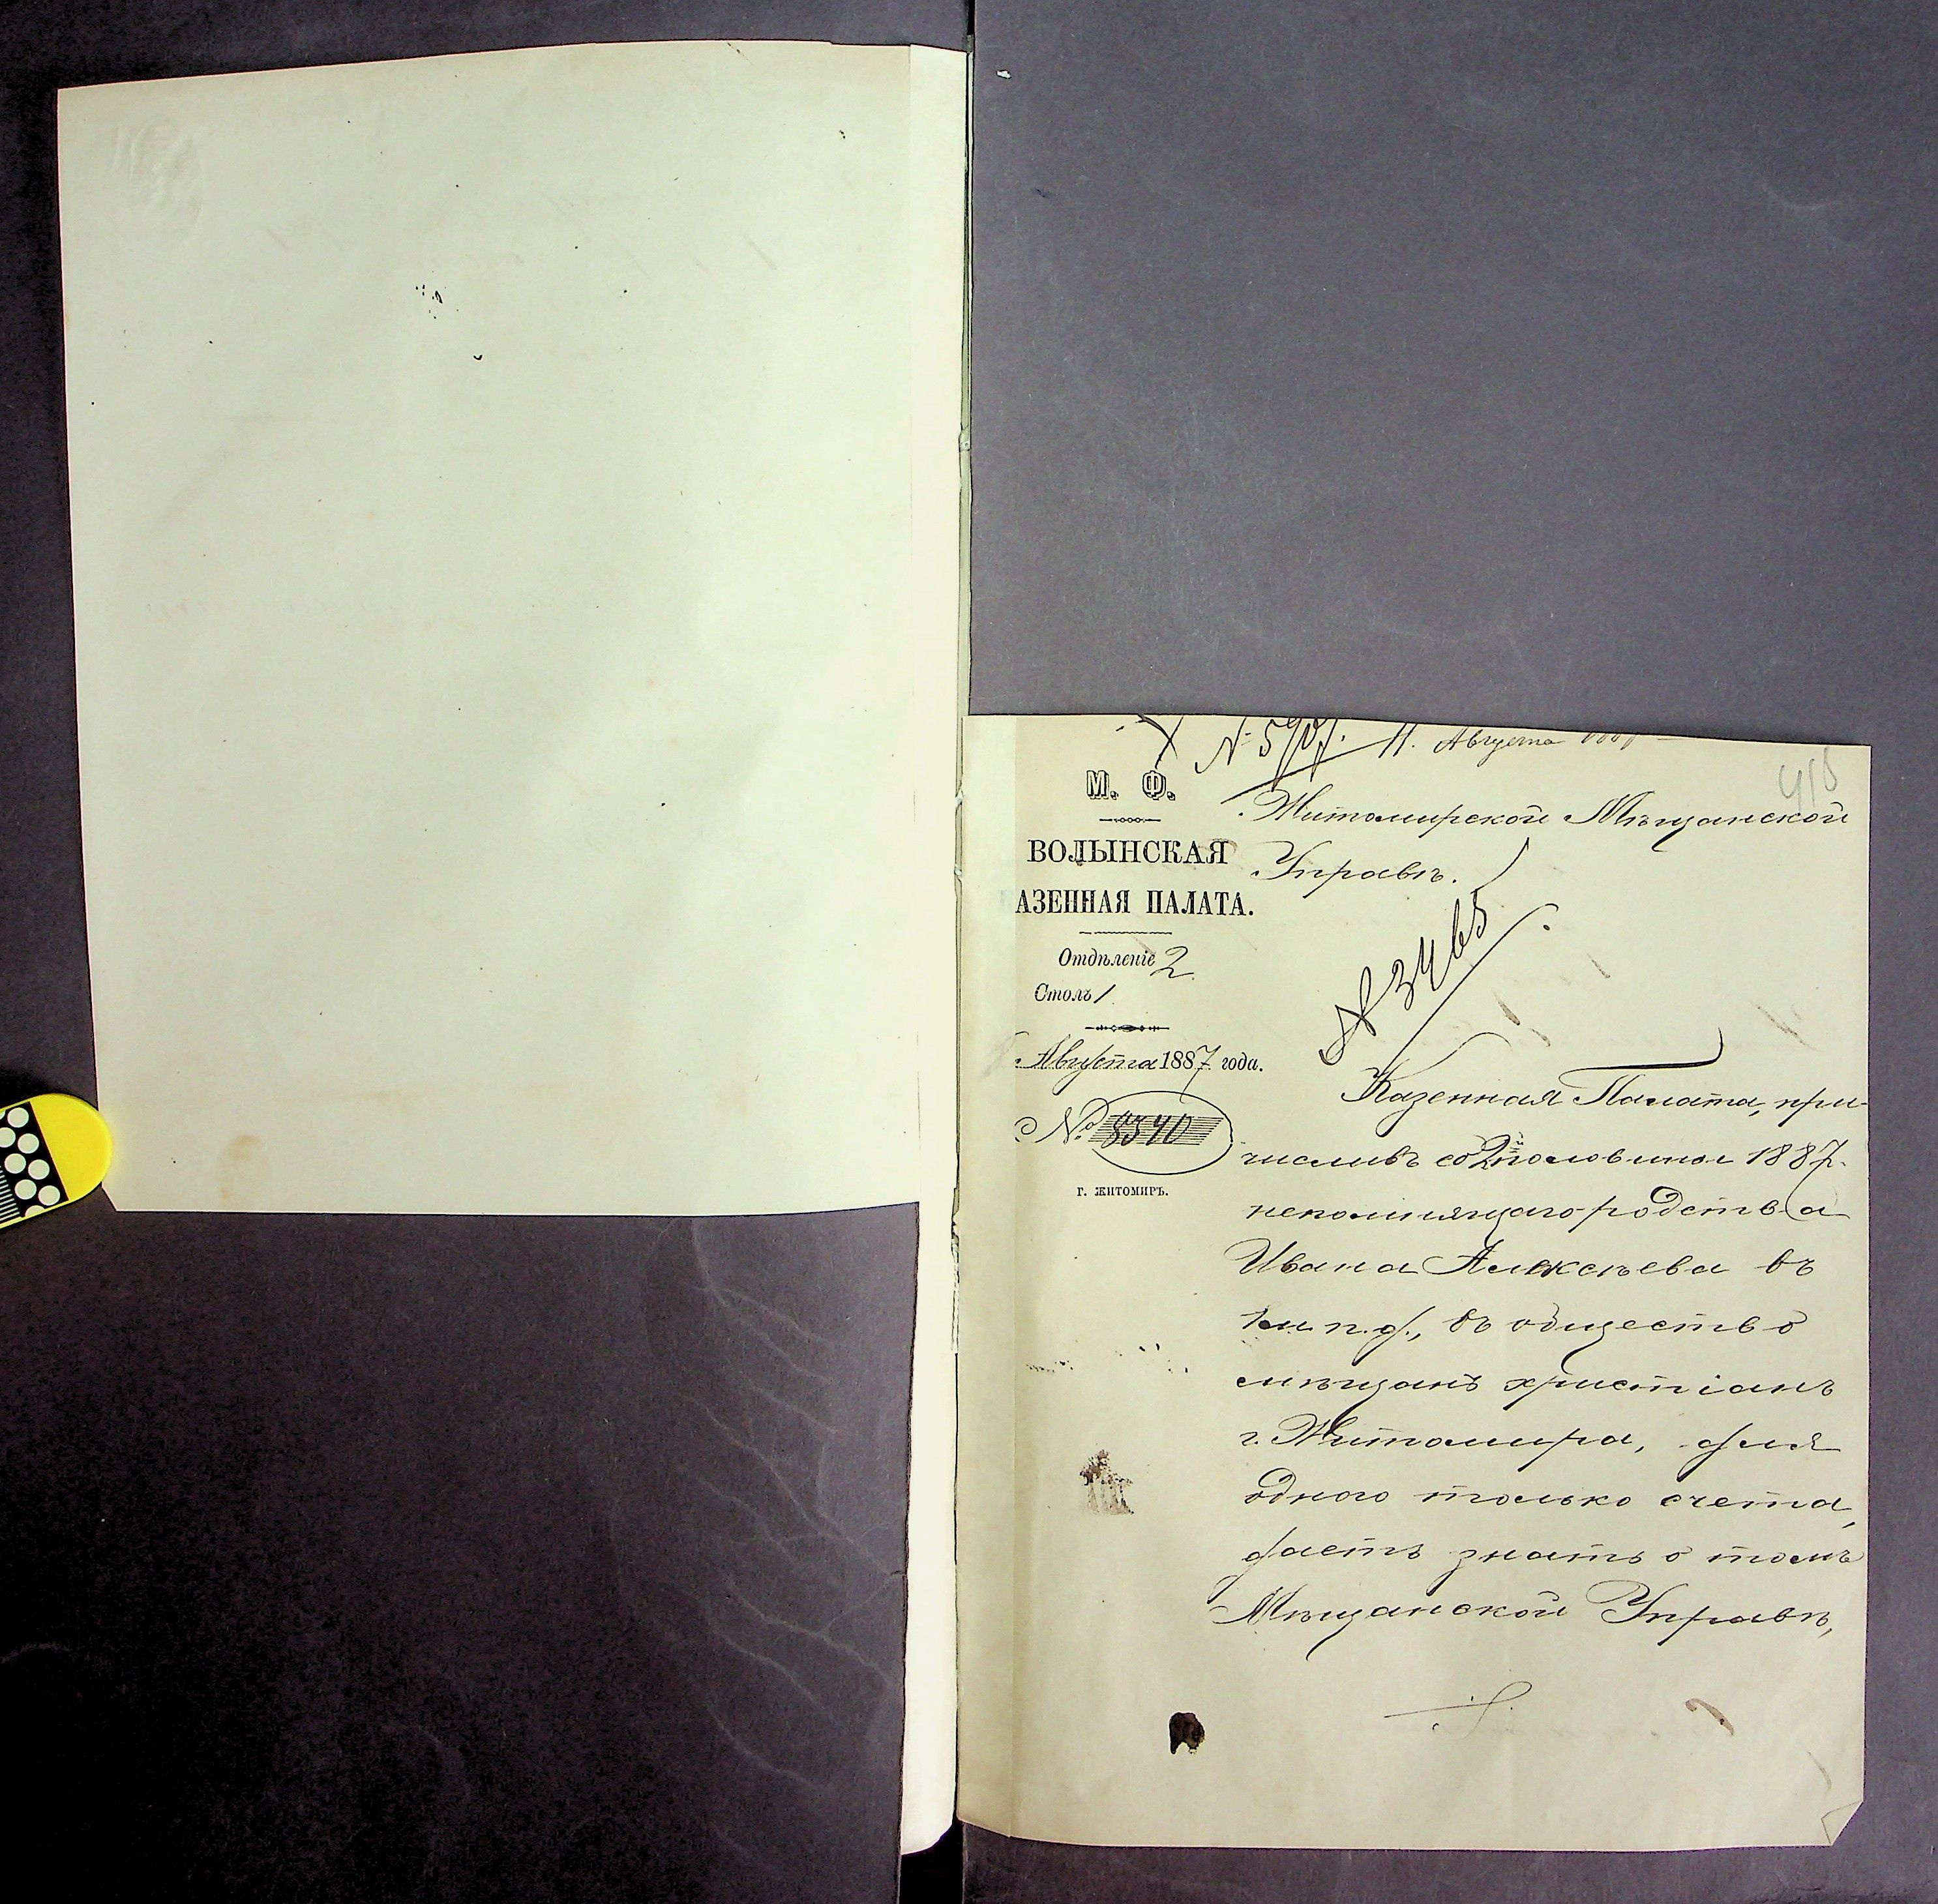 № 5707. 11. Августа
418
М. Ф.
ВОЛЫНСКАЯ
АЗЕННАЯ ПАЛАТА.
Отдѣленіе 2
Столъ 1
Августа 1887 года.
№ 8540
г. ЖИТОМИРЪ.
Житомирской Мѣщанской
Управѣ.
№ 3465
Казенная Палата, при-
числивъ со 2й половины 1887 г.
непомнящаго родства
Ивана Алексѣева въ
1 м. п. д., въ общество
мѣщанъ христіанъ
г. Житомира, для
одного только счета,
даетъ знать о томъ
Мѣщанской Управѣ,